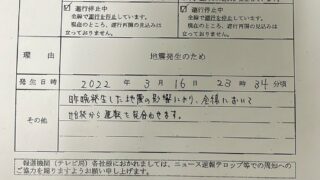 ☑ 運行停止中
全線で運行を停止しています。
現在のところ、運行再開の見込みは
立っておりません。
☑ 運行停止中
全線で運行を停止しています。
現在のところ、運行再開の見込みは
立っておりません。
理由 地震発生のため
発生日時 2022年3月16日23時34分頃
その他 昨晩発生した地震の影響により、全線において
始発から運転を見合わせます。
報道機関(テレビ局)各社様におかれましては、ニュース速報テロップ等での周知への
ご協力を賜りますようお願い申し上げます。